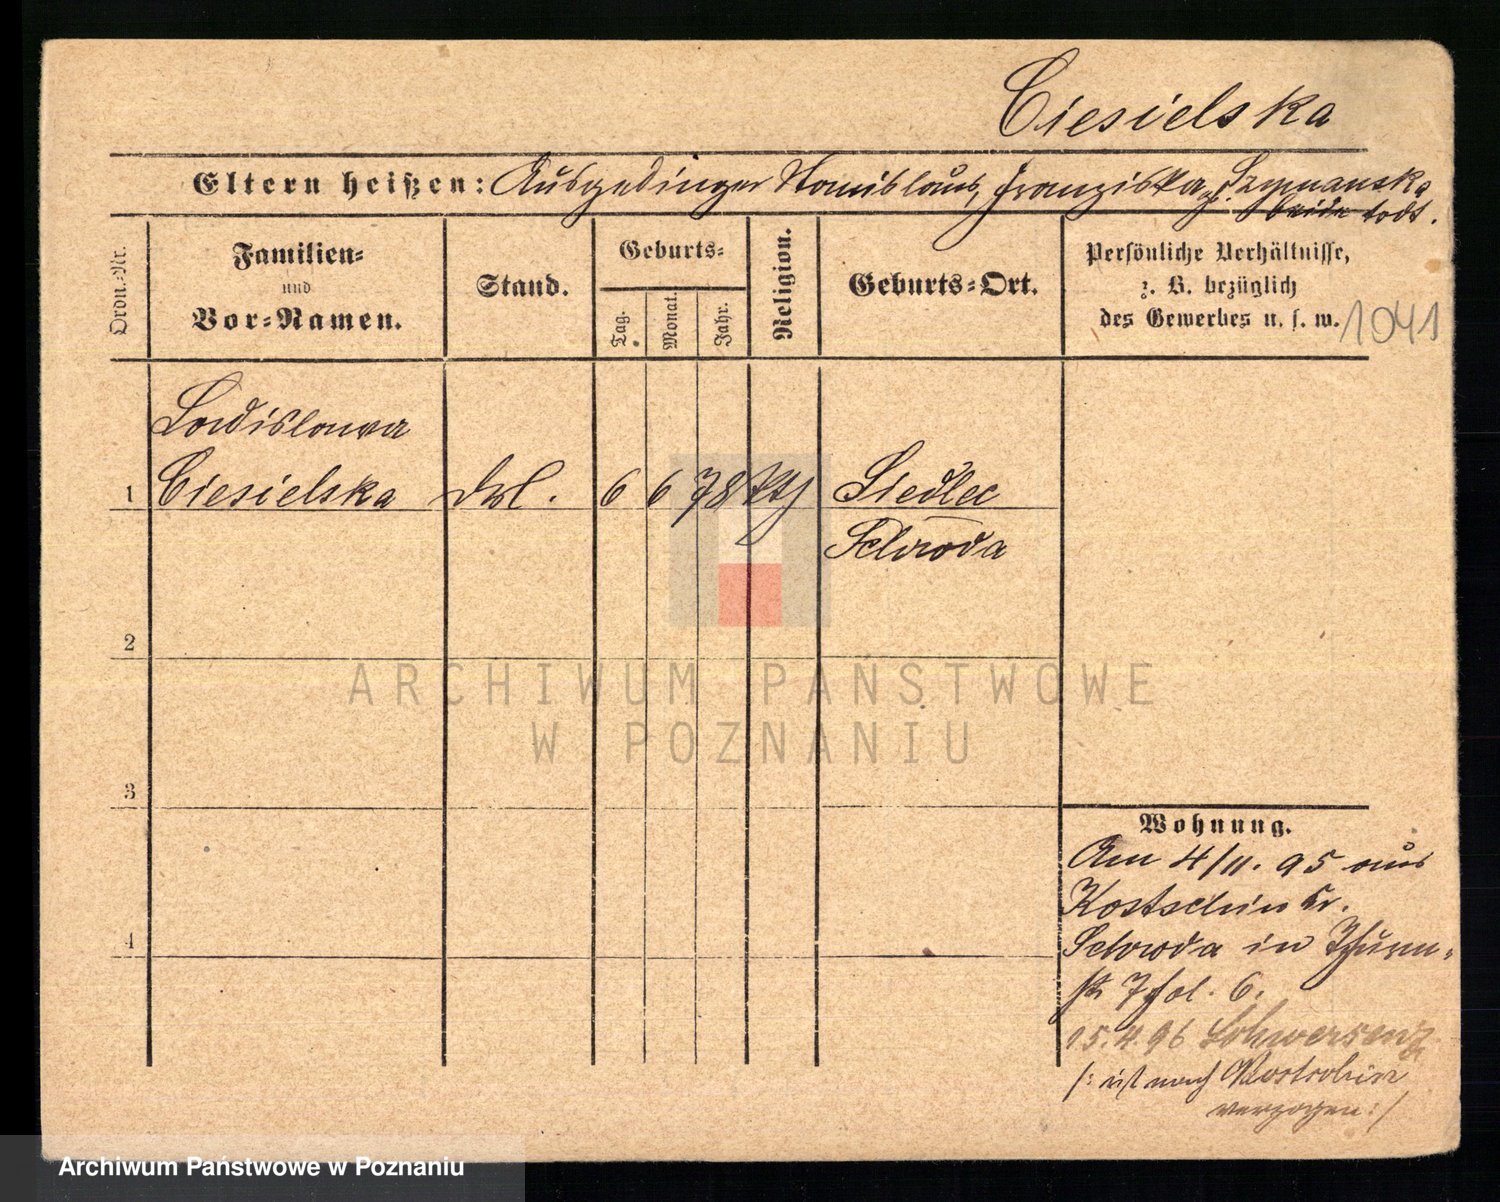 Ciesielska
Eltern heißen: Ausgedinger Stanislaus, Franziska g. Szymanska
beide todt.
Ordn.-Nr.
Familien-
und
Vor-Namen.
Stand.
Geburts-
Tag.
Monat.
Jahr.
Religion.
Geburts-Ort.
Persönliche Verhältnisse,
z. B. bezüglich
des Gewerbes u. s. w.
1041
Ladislawa
1 Ciesielska 6 6 78 kth Siedlec
Schroda
2
3
4
Wohnung.
Am 4/11. 95 aus
Kostschin Kr.
Schroda in Thurm-
str 7 6.
15.4.96 Schwersenz
/: ist nach Kostschin
verzogen :/
ARCHIWUM PAŃSTWOWE
W POZNANIU
Archiwum Państwowe w Poznaniu